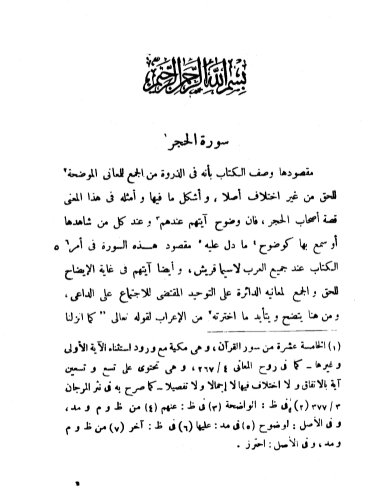 بسم الله الرحمن الرحيم
سورة الحجر¹
مقصودها وصف الكتاب بأنه فى الذروة من الجمع للعانى الموضحة²
للحق من غير اختلاف أصلا، وأشكل ما فيها وأمثله فى هذا المعنى
قصة أصحاب الحجر، فان وضوح آيتهم عندهم³ وعند كل من شاهدها
أو سمع بها كوضوح⁴ ما دل عليه⁵ مقصود هذه السورة فى أمر⁶ ٥
الكتاب عند جميع العرب لاسيما قريش، وأيضا آيتهم فى غاية الإيضاح
للحق والجمع لمعانيه الدائرة على التوحيد المقتضى للاجتماع على الداعى،
ومن هنا يتضح ويتأيد ما اخترته⁷ من الإعراب لقوله تعالى " كما انزلنا
(١) الخامسة عشرة من سور القرآن، وهى مكية مع ورود استثناء الآية الأولى
وغيرها – كما فى روح المعانى ٤/٢٦٧، وهى تحتوى على تسع و تسعين
آية بالاتفاق و لا اختلاف فيها لا إجمالا ولا تفصيلا – كما صرح به فى نثر المرجان
٣/٣٧٧ (٢) فى ظ : الواضحة (٣) فى ظ : عنهم (٤) من ظ و م و مد،
و فى الأصل : اوضوح (٥) فى مد : عليها (٦) فى ظ : آخر (٧) من ظ و م
و مد، و فى الأصل : احترز .